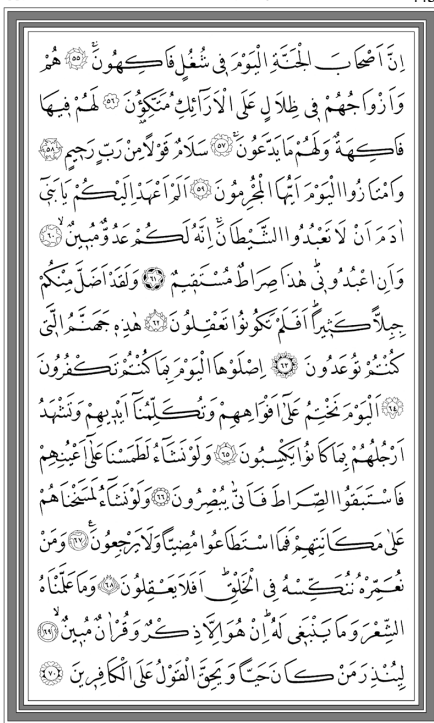 اِنَّ اَصْحَابَ الْجَنَّةِ الْيَوْمَ فٖى شُغُلٍ فَاكِهُونَۚ ﴿٥٥﴾ هُمْ
وَاَزْوَاجُهُمْ فٖى ظِلَالٍ عَلَى الْاَرَٓائِكِ مُتَّكِؤُ۫نَ ﴿٥٦﴾ لَهُمْ فٖيهَا
فَاكِهَةٌ وَلَهُمْ مَا يَدَّعُونَۚ ﴿٥٧﴾ سَلَامٌ قَوْلًا مِنْ رَبٍّ رَحٖيمٍ ﴿٥٨﴾
وَامْتَازُوا الْيَوْمَ اَيُّهَا الْمُجْرِمُونَ ﴿٥٩﴾ اَلَمْ اَعْهَدْ اِلَيْكُمْ يَا بَنٖٓى
اٰدَمَ اَنْ لَا تَعْبُدُوا الشَّيْطَانَۚ اِنَّهُ لَكُمْ عَدُوٌّ مُبٖينٌۙ ﴿٦٠﴾
وَاَنِ اعْبُدُونٖىؕ هٰذَا صِرَاطٌ مُسْتَقٖيمٌ ﴿٦١﴾ وَلَقَدْ اَضَلَّ مِنْكُمْ
جِبِلًّا كَثٖيرًاؕ اَفَلَمْ تَكُونُوا تَعْقِلُونَ ﴿٦٢﴾ هٰذِهٖ جَهَنَّمُ الَّتٖى
كُنْتُمْ تُوعَدُونَ ﴿٦٣﴾ اِصْلَوْهَا الْيَوْمَ بِمَا كُنْتُمْ تَكْفُرُونَ
﴿٦٤﴾ اَلْيَوْمَ نَخْتِمُ عَلٰٓى اَفْوَاهِهِمْ وَتُكَلِّمُنَٓا اَيْدٖيهِمْ وَتَشْهَدُ
اَرْجُلُهُمْ بِمَا كَانُوا يَكْسِبُونَ ﴿٦٥﴾ وَلَوْ نَشَٓاءُ لَطَمَسْنَا عَلٰٓى اَعْيُنِهِمْ
فَاسْتَبَقُوا الصِّرَاطَ فَاَنّٰى يُبْصِرُونَ ﴿٦٦﴾ وَلَوْ نَشَٓاءُ لَمَسَخْنَاهُمْ
عَلٰى مَكَانَتِهِمْ فَمَا اسْتَطَاعُوا مُضِيًّا وَلَا يَرْجِعُونَۚ ﴿٦٧﴾ وَمَنْ
نُعَمِّرْهُ نُنَكِّسْهُ فِى الْخَلْقِؕ اَفَلَا يَعْقِلُونَ ﴿٦٨﴾ وَمَا عَلَّمْنَاهُ
الشِّعْرَ وَمَا يَنْبَغٖى لَهُؕ اِنْ هُوَ اِلَّا ذِكْرٌ وَقُرْاٰنٌ مُبٖينٌۙ ﴿٦٩﴾
لِيُنْذِرَ مَنْ كَانَ حَيًّا وَيَحِقَّ الْقَوْلُ عَلَى الْكَافِرٖينَ ﴿٧٠﴾